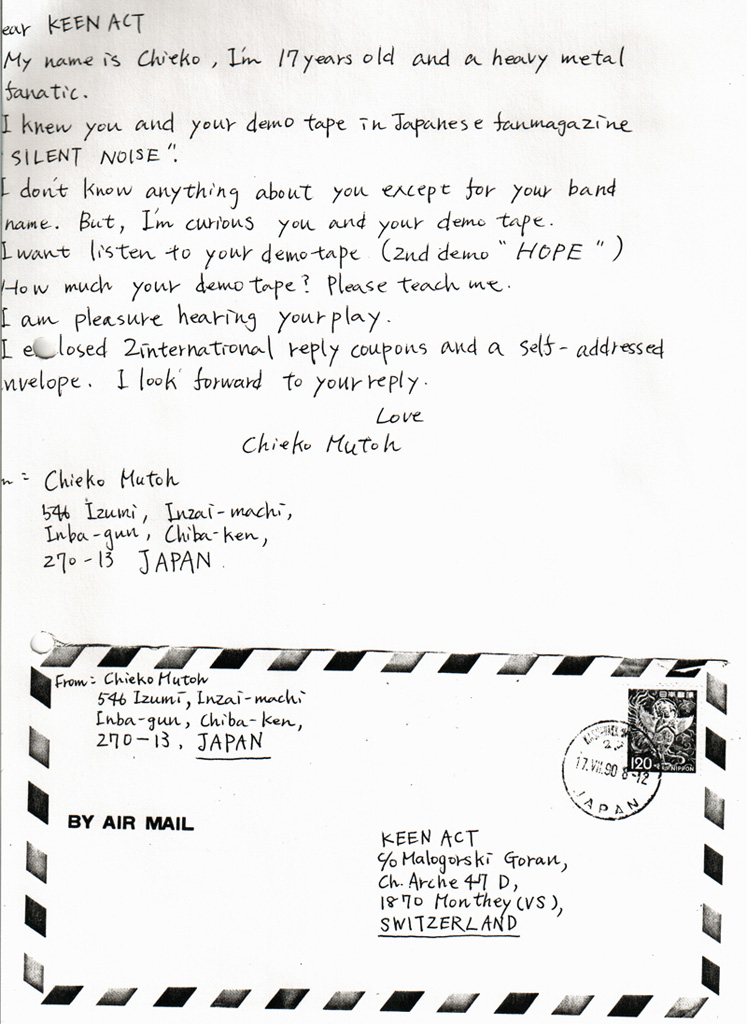 ear KEEN ACT
My name is Chieko, I'm 17years old and a heavy metal
fanatic.
I knew you and your demo tape in Japanese fanmagazine
"SILENT NOISE".
I don't know anything about you except for your band
name. But, I'm curious you and your demo tape.
I want listen to your demotape (2nd demo "HOPE")
How much your demotape? Please teach me.
I am pleasure hearing your play.
I e losed 2international reply coupons and a self-addressed
nvelope. I look forward to your reply.
Love
Chieko Mutoh
m: Chieko Mutoh
546 Izumi, Inzai-machi,
Inba-gun, Chiba-ken,
270-13 JAPAN.
From: Chieko Mutoh
546 Izumi, Inzai-machi
Inba-gun, Chiba-ken,
270-13, JAPAN
日本郵便
120 NIPPON
17.VII.90 8-12
JAPAN
BY AIR MAIL
KEEN ACT
c/o Malogorski Goran,
Ch. Arche 47 D,
1870 Monthey (VS),
SWITZERLAND